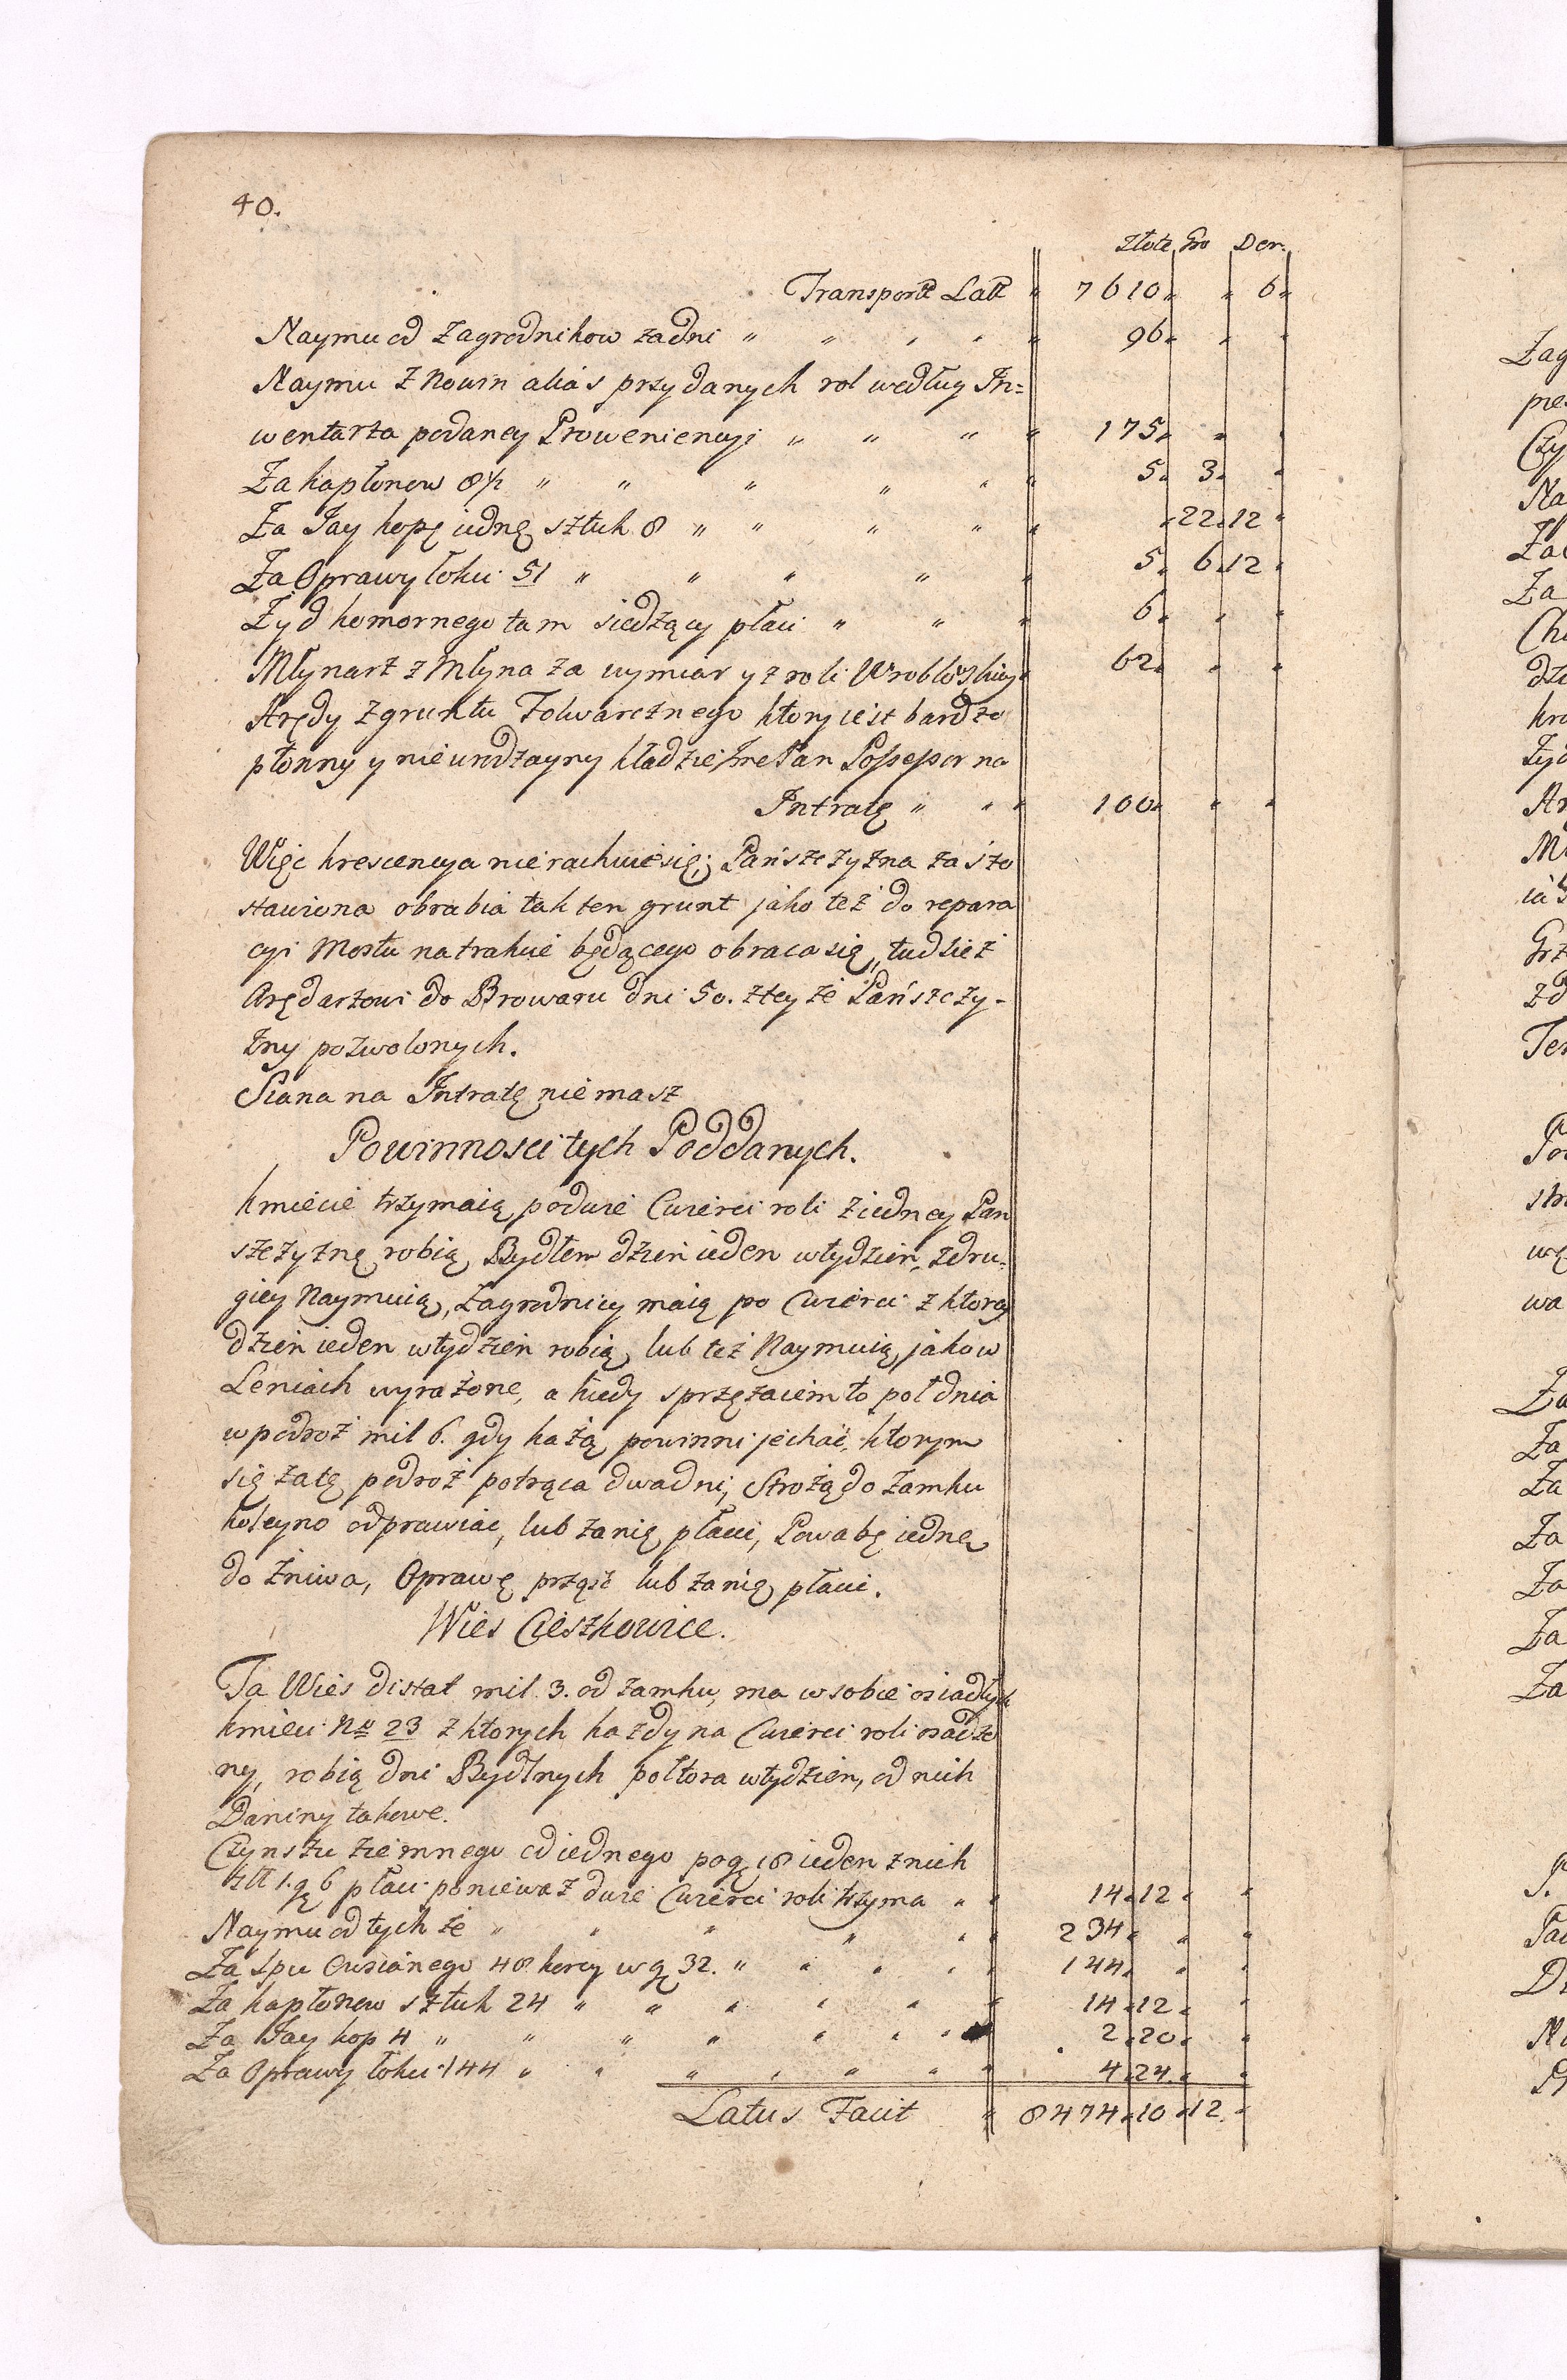 40.
Złote Gro Den.
Transporte Late " 7610 " " 6 "
Naymu od Zagrodnikow za dni " " " " " 96 " " "
Naymu z Nowin alias przydanych rol według In=
wentarza podaney Proweniencyi " " " " 175 " " "
Za kapłonow 8½ " " " " " " 5 " 3 " "
Za Jay kopę iednę sztuk 8 " " " " " " 22 " 12 "
Za Oprawy łokci 51 " " " " " 5 " 6 " 12 "
Żyd komornego tam siedzący płaci " " " 6 " " "
Młynarz z Młyna za wymiar y z roli Wroblowskiey " 62 " " "
Arędy z gruntu Folwarcznego ktory iest bardzo
płonny y nieurodzayny kładzie Jme Pan Possessor na
Intratę " " " 100 " " "
Więc krescencya nie rachuie się; Pańszczyzna zaś zo
stawiona obrabia tak ten grunt jako też do repara
cyi Mostu na trakcie będącego obraca się, tudzież
Arędarzowi do Browaru dni 50. z tey że Pańszczy-
zny pozwolonych.
Siana na Intratę nie masz
Powinnosci tych Poddanych.
Kmiecie trzymaią po dwie Cwierci roli z iedney Pan
szczyznę robią Bydłem dzień ieden w tydzień, z dru=
giey Naymuią, Zagrodnicy maią po Cwierci z ktorey
dzień ieden w tydzień robią lub też Naymuią, jako w
Leniach wyrażone, a kiedy sprzężaiem to poł dnia
w podroż mil 6. gdy każą powinni jechać, ktorym
się za tę podroż potrąca dwa dni, Strożą do Zamku
koleyno odprawiać, lub za nię płaci, Powabę iednę
do Żniwa, Oprawę prząść lub za nię płaci.
Wies Cieszkowice.
Ta Wies distat mil 3. od Zamku, ma w sobie osiadłych
kmieci No 23 z ktorych każdy na Cwierci roli osadzo
ny, robią dni Bydlnych połtora w tydzien, od nich
Daniny takowe.
Czynszu ziemnego od iednego po gr 18 ieden z nich
złł 1. gr 6 płaci ponieważ dwie Cwierci roli trzyma " " 14 " 12 " "
Naymu od tych że " " " " " " 234 " " "
Za Spu Owsianego 48 korcy w gr 32. " " " " " 144 " " "
Za kapłonow sztuk 24 " " " " " " 14 " 12 " "
Za Jay kop 4 " " " " " " " 2 " 20 " "
Za Oprawy łokci 144 " " " " " " " 4 " 24 " "
Latus Facit " 8474 " 10 " 12 "